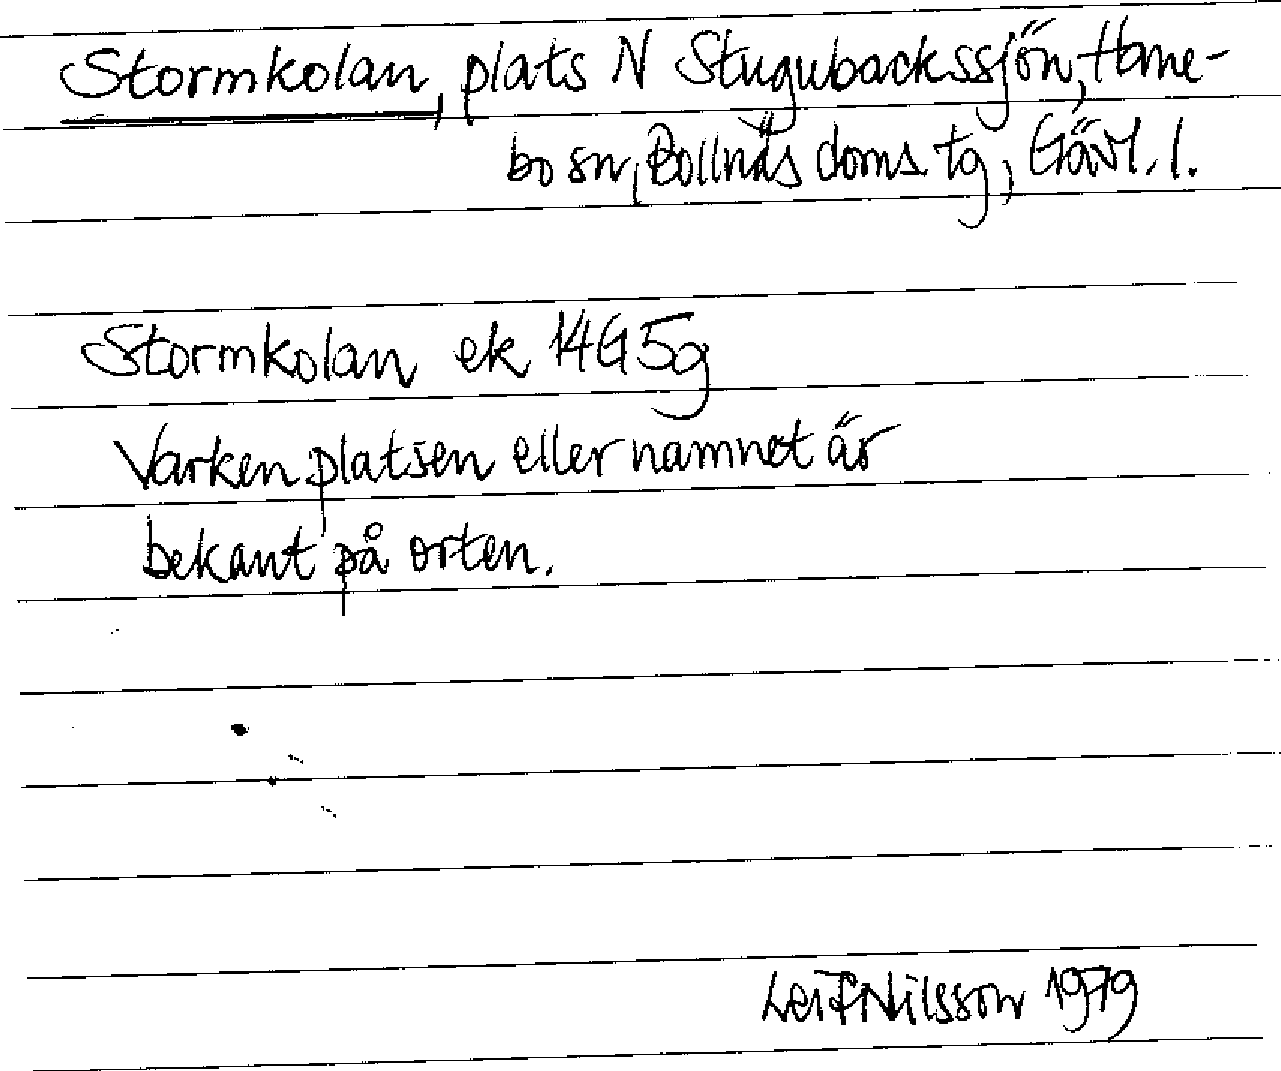 Stormkolan, plats N Stugubackssjön, Hane-
bo sn, Bollnäs doms. tg, Gävl. l.
Stormkolan ek 14G5g
Varken platsen eller namnet är
bekant på orten.
Leif Nilsson 1979